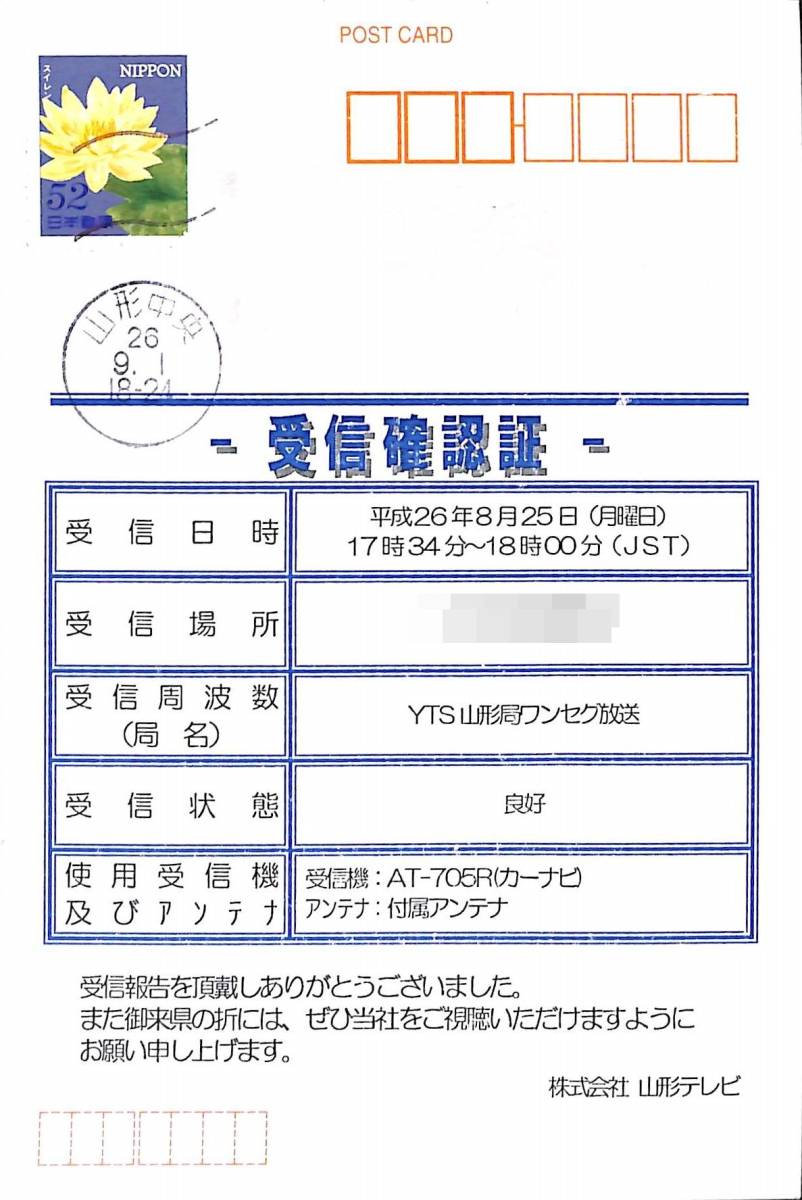 POST CARD
スイレン
NIPPON
52
日本郵便
山形中央
26
9. 1
18-24
- 受信確認証 -
受信日時
平成26年8月25日(月曜日)
17時34分~18時00分(JST)
受信場所
受信周波数
(局 名)
YTS山形局ワンセグ放送
受信状態
良好
使用受信機
及びアンテナ
受信機:AT-705R(カーナビ)
アンテナ:付属アンテナ
受信報告を頂戴しありがとうございました。
また御来県の折には、ぜひ当社をご視聴いただけますように
お願い申し上げます。
株式会社 山形テレビ